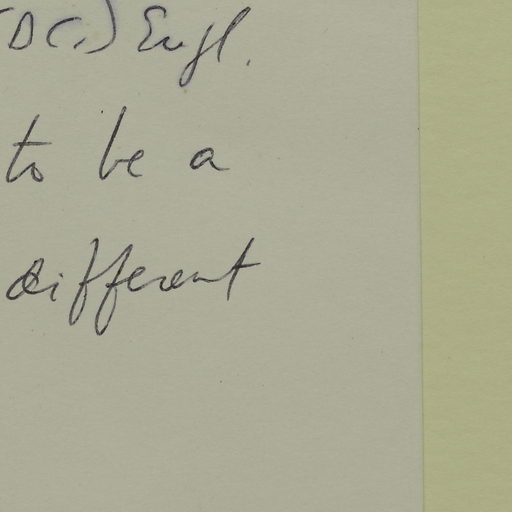 (DC,) Engl.
to be a
different